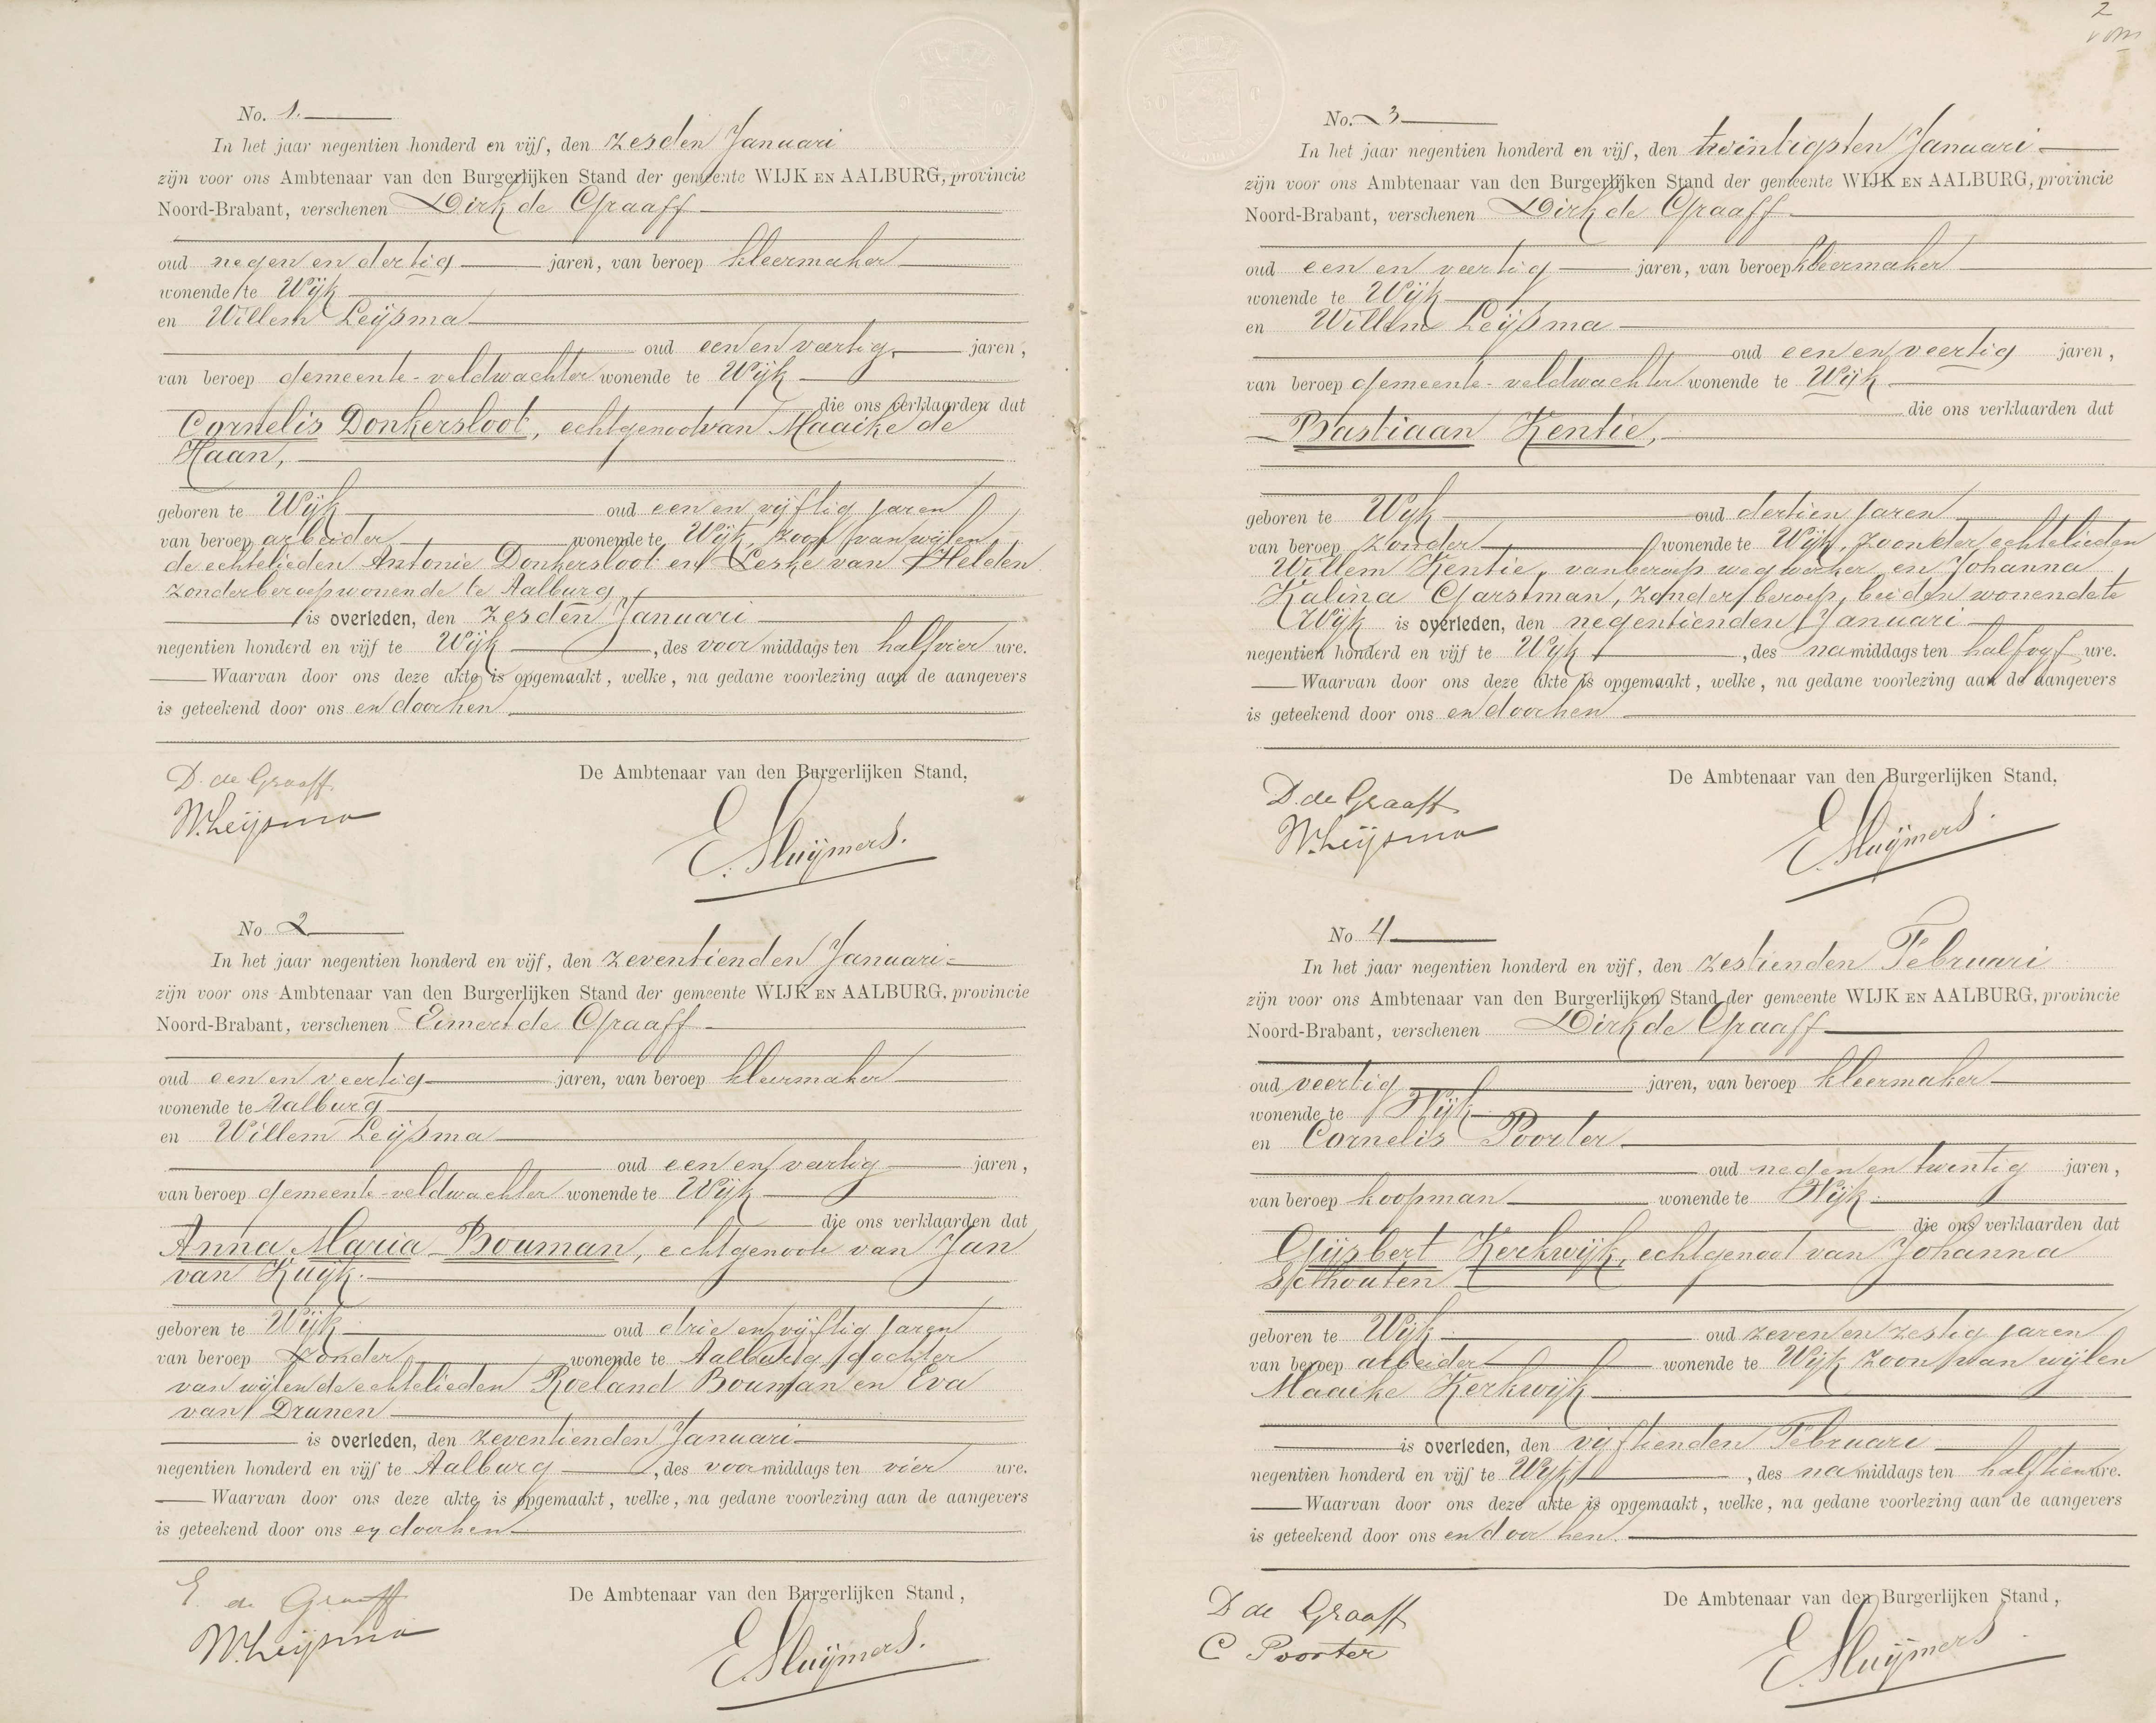 No. 1.
In het jaar negentien honderd en vijf, den zesden Januari
zijn voor ons Ambtenaar van den Burgerlijken Stand der gemeente WIJK EN AALBURG, provincie
Noord-Brabant, verschenen Dirk de Graaff
oud negen en dertig jaren, van beroep kleermaker
wonende te Wijk
en Willem Leijsma
oud een en veertig jaren,
van beroep gemeente-veldwachter wonende te Wijk
die ons verklaarden dat
Cornelis Donkersloot, echtgenoot van Maaike de
Haan,
geboren te Wijk oud een en vijftig jaren
van beroep arbeider wonende te Wijk, zoon van wijlen
de echtelieden Antonie Donkersloot en Leske van Helden
zonder beroep wonende te Aalburg
is overleden, den zesden Januari
negentien honderd en vijf te Wijk, des voor middags ten half vier ure.
Waarvan door ons deze akte is opgemaakt, welke, na gedane voorlezing aan de aangevers
is geteekend door ons en door hen
De Ambtenaar van den Burgerlijken Stand,
D. de Graaff
W. Leijsma
E. Sluijmers.
No 2
In het jaar negentien honderd en vijf, den zeventienden Januari
zijn voor ons Ambtenaar van den Burgerlijken Stand der gemeente WIJK EN AALBURG, provincie
Noord-Brabant, verschenen Eimert de Graaff
oud een en veertig jaren, van beroep kleermaker
wonende te Aalburg
en Willem Leijsma
oud een en veertig jaren,
van beroep gemeente-veldwachter wonende te Wijk
die ons verklaarden dat
Anna Maria Bouman, echtgenoote van Jan
van Kuijk.
geboren te Wijk oud drie en vijftig jaren
van beroep zonder wonende te Aalburg, dochter
van wijlen de echtelieden Roeland Bouman en Eva
van Drunen
is overleden, den zeventienden Januari
negentien honderd en vijf te Aalburg, des voor middags ten vier ure.
Waarvan door ons deze akte is opgemaakt, welke, na gedane voorlezing aan de aangevers
is geteekend door ons en door hen
De Ambtenaar van den Burgerlijken Stand,
E. de Graaff
W. Leijsma
E. Sluijmers.
2
No. 3
In het jaar negentien honderd en vijf, den twintigsten Januari
zijn voor ons Ambtenaar van den Burgerlijken Stand der gemeente WIJK EN AALBURG, provincie
Noord-Brabant, verschenen Dirk de Graaff
oud een en veertig jaren, van beroep kleermaker
wonende te Wijk
en Willem Leijsma
oud een en veertig jaren,
van beroep gemeente-veldwachter wonende te Wijk
die ons verklaarden dat
Bastiaan Kentie,
geboren te Wijk oud dertien jaren
van beroep zonder wonende te Wijk, zoon der echtelieden
Willem Kentie, van beroep wegwerker en Johanna
Kalina Garsman, zonder beroep, beiden wonende te
Wijk is overleden, den negentienden Januari
negentien honderd en vijf te Wijk, des namiddags ten half vyf ure.
Waarvan door ons deze akte is opgemaakt, welke, na gedane voorlezing aan de aangevers
is geteekend door ons en door hen
De Ambtenaar van den Burgerlijken Stand,
D. de Graaff
W. Leijsma
E. Sluijmers.
No 4
In het jaar negentien honderd en vijf, den zestienden Februari
zijn voor ons Ambtenaar van den Burgerlijken Stand der gemeente WIJK EN AALBURG, provincie
Noord-Brabant, verschenen Dirk de Graaff
oud veertig jaren, van beroep kleermaker
wonende te Wijk
en Cornelis Poorter
oud negen en twintig jaren,
van beroep koopman wonende te Wijk
die ons verklaarden dat
Gijsbert Kerkwijk, echtgenoot van Johanna
Spelhouten
geboren te Wijk oud zeven en zestig jaren
van beroep arbeider wonende te Wijk zoon van wijlen
Maaike Kerkwijk
is overleden, den vijftienden Februari
negentien honderd en vijf te Wijk, des namiddags ten half tien ure.
Waarvan door ons deze akte is opgemaakt, welke, na gedane voorlezing aan de aangevers
is geteekend door ons en door hen.
De Ambtenaar van den Burgerlijken Stand,
D de Graaff
C Poorter
E. Sluijmers